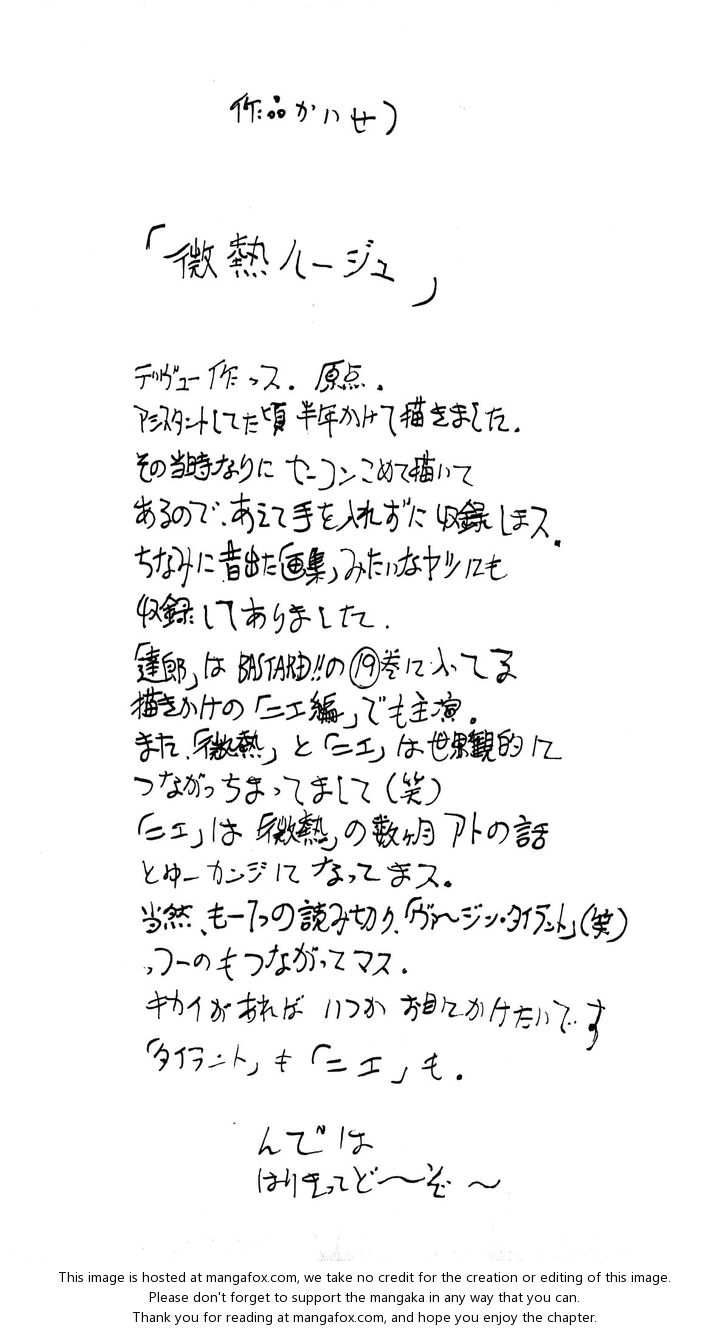 作品かいせつ
「微熱ルージュ」
デヴュー作っス。原点。
アシスタントしてた頃半年かけて描きました。
その当時なりにセーコンこめて描いて
あるので、あえて手を入れずに収録しまス。
ちなみに昔出た「画集」みたいなヤツにも
収録してありました。
「達郎」はBASTARD!!の⑲巻に入ってる
描きかけの「ニエ編」でも主演。
また、「微熱」と「ニエ」は世界観的に
つながっちまってまして(笑)
「ニエ」は「微熱」の数ヶ月アトの話
とゆーカンジになってまス。
当然、も一つの読み切り、「ヴァージン・タイラント」(笑)
っつーのもつながってマス。
キカイがあれば いつか お目にかけたいです
「タイラント」も「ニエ」も.
んでは
はりきってど〜ぞ〜
This image is hosted at mangafox.com, we take no credit for the creation or editing of this image.
Please don't forget to support the mangaka in any way that you can.
Thank you for reading at mangafox.com, and hope you enjoy the chapter.